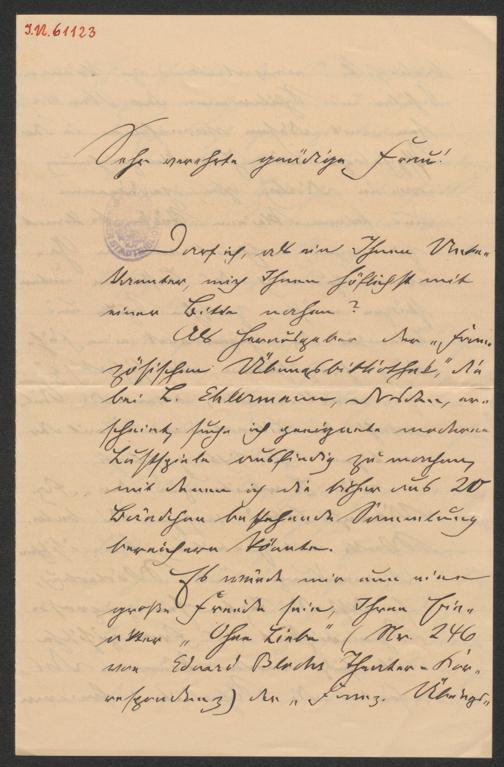 I.N. 61123
Sehr verehrte gnädige Frau!
Darf ich, als ein Ihnen Unbe-
kannter, mich Ihnen höflichst mit
einer Bitte nahen?
Als Herausgeber der „Fran-
zösischen Übungsbibliothek", die
bei L. Ehlermann, Dresden, er-
scheint, suche ich geeignete moderne
Lustspiele ausfindig zu machen,
mit denen ich die bisher aus 20
Bändchen bestehende Sammlung
bereichern könnte.
Es würde mir nun eine
große Freude sein, Ihren Ein-
akter „Ohne Liebe" (Nr. 246
von Eduard Blochs Theater-Kor-
respondenz) der „Franz. Übungs-